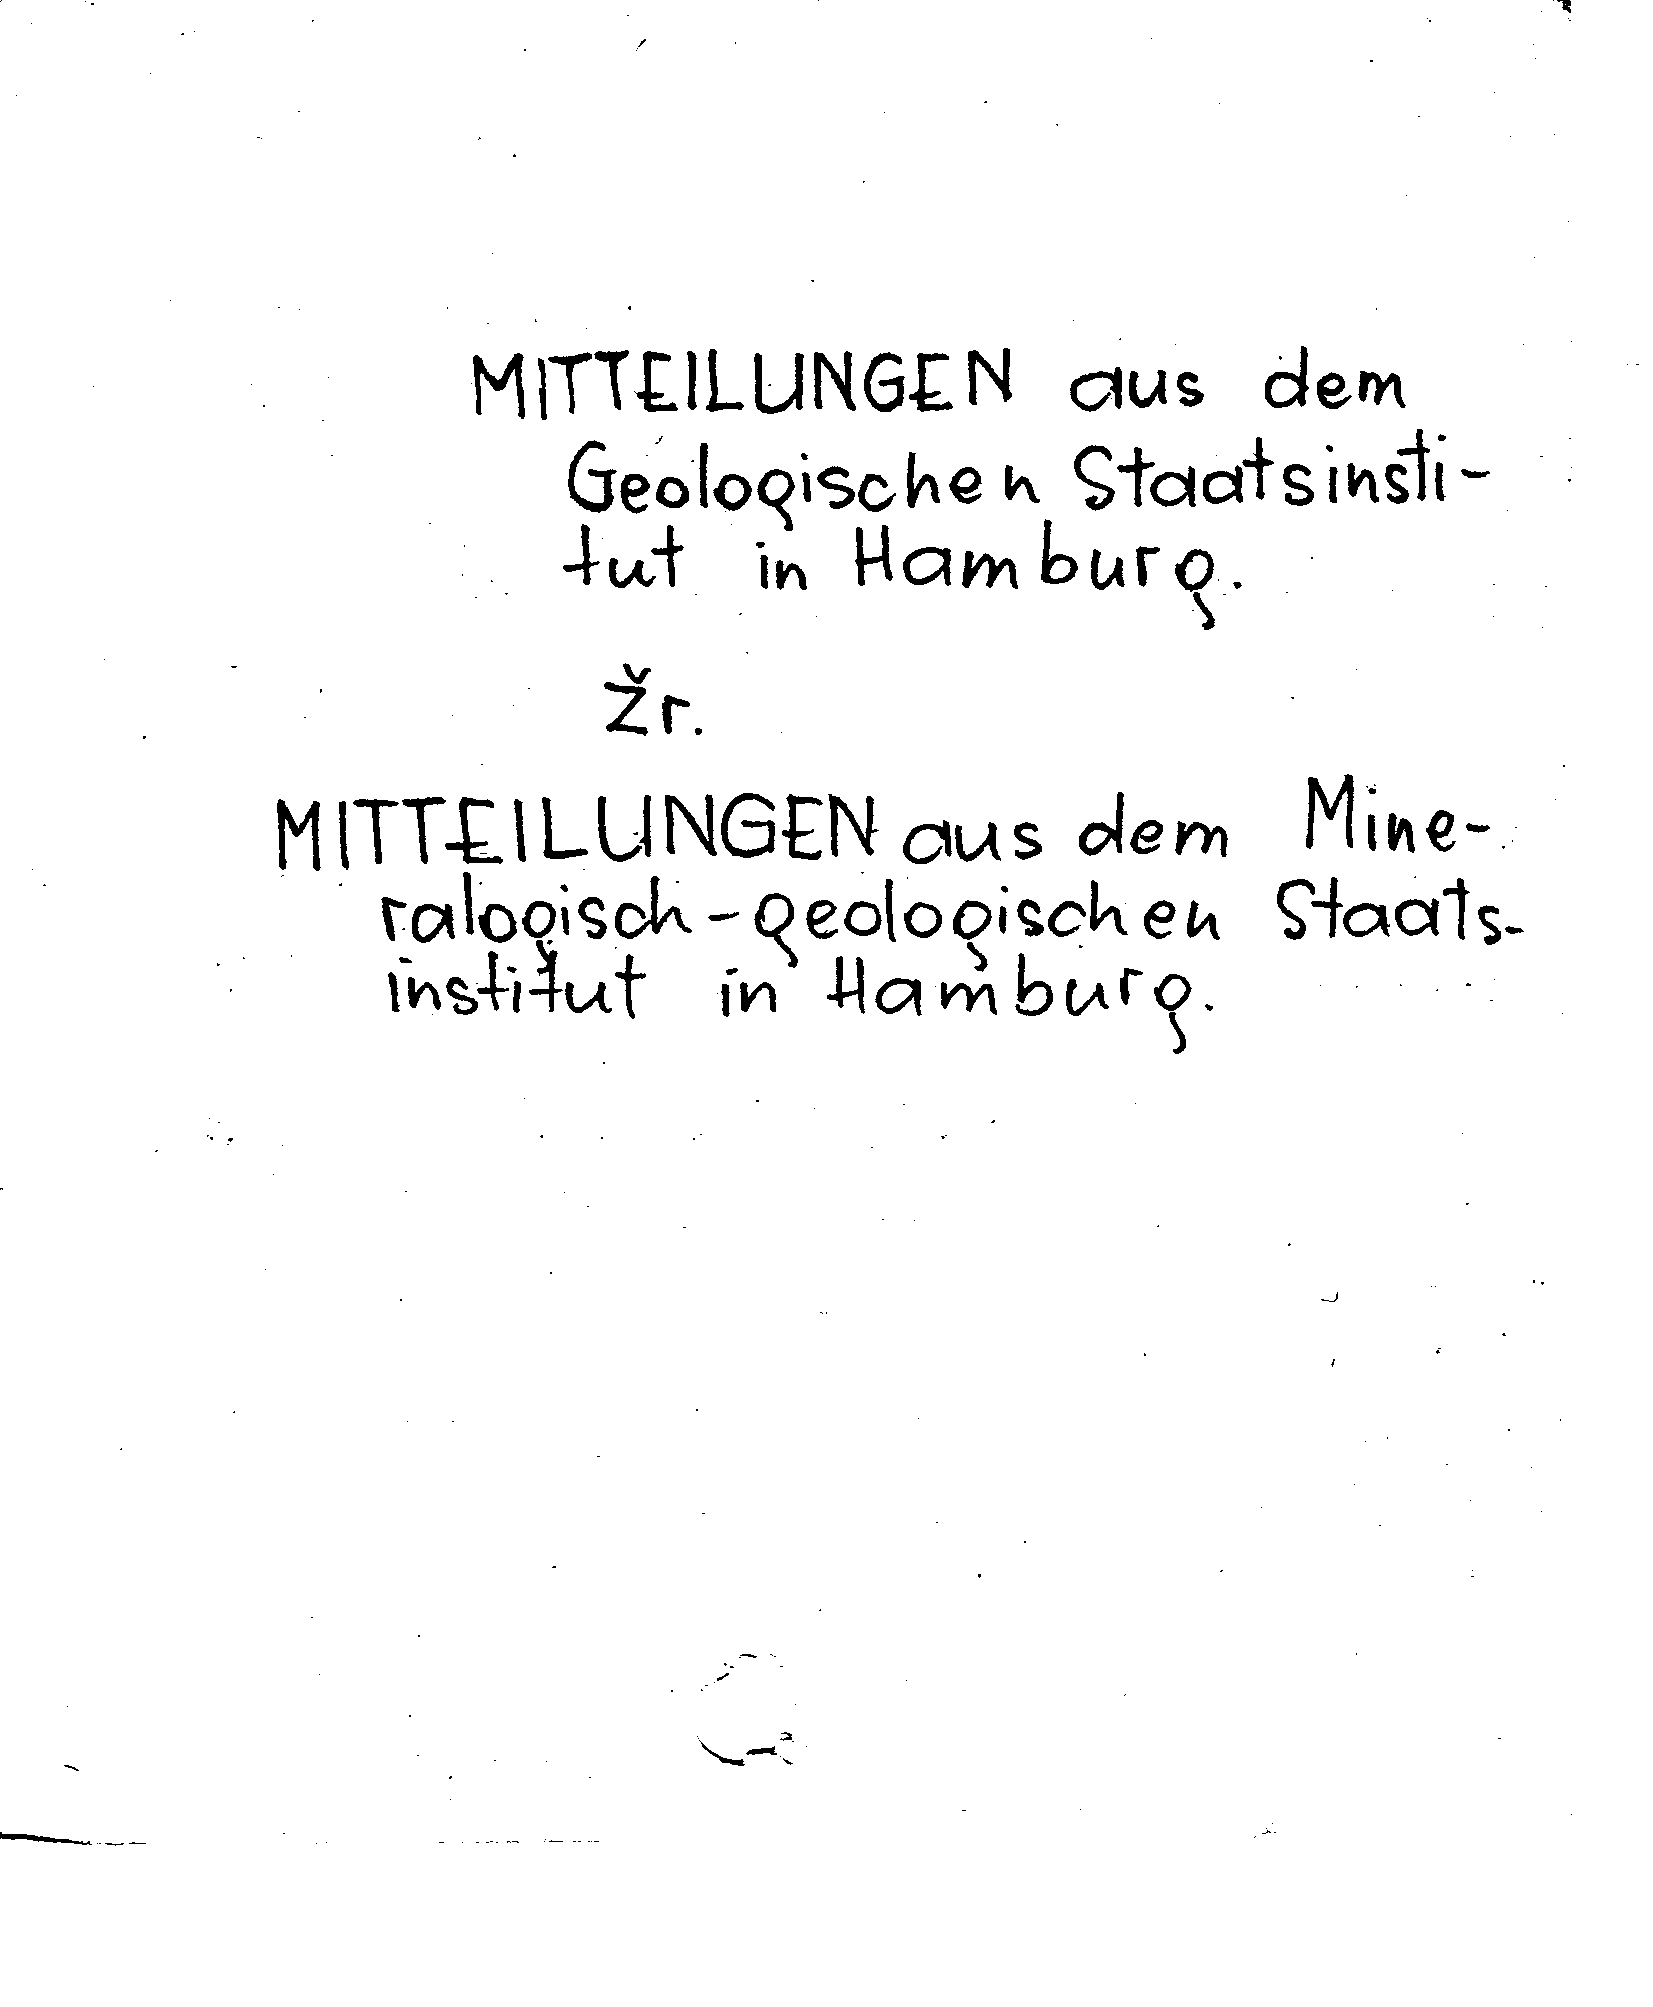 MITTEILUNGEN aus dem
Geologischen Staatsinsti-
tut in Hamburg.
Žr.
MITTEILUNGEN aus dem Mine-
ralogisch-geologischen Staats-
institut in Hamburg.